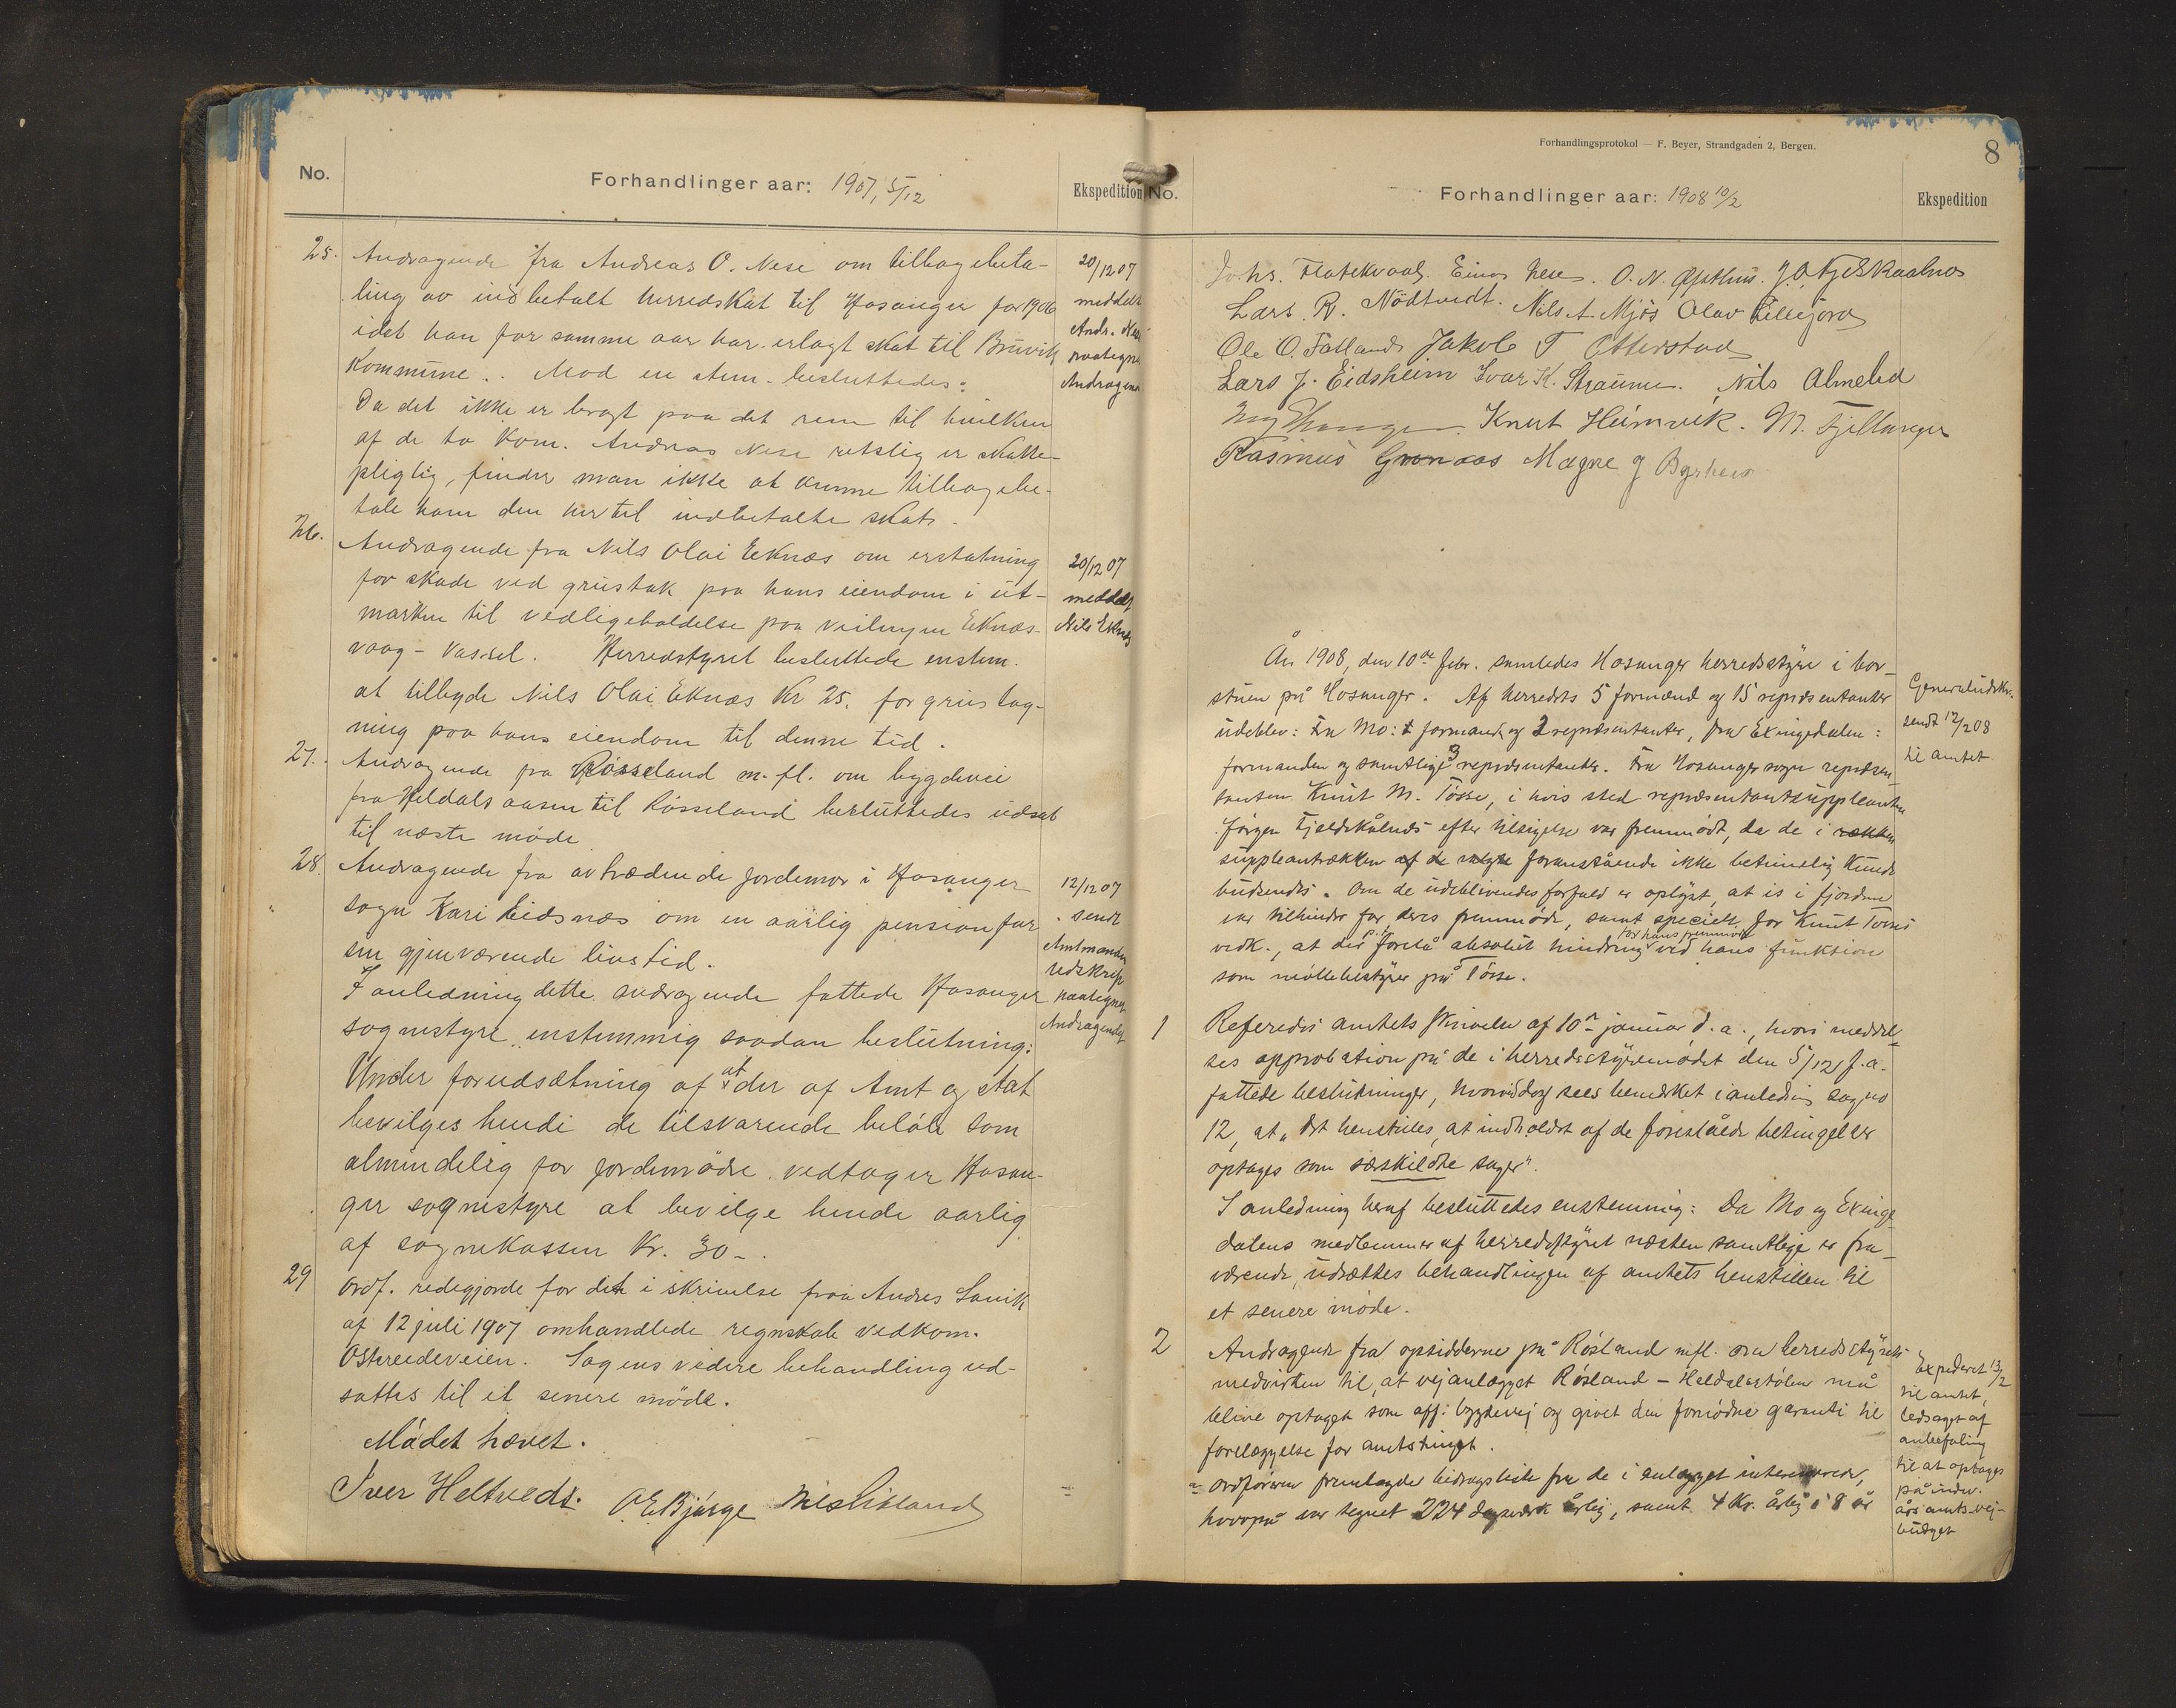 No.
Forhandlinger aar: 1907, 5/12
Ekspedition
25. Andragende fra Andreas O. Nese om tilbagebeta-
ling av indbetalt herredskat til Hosanger for 1906
idet han for samme aar har erlagt skat til Bruvik
Kommune. Mod en stem. besluttedes:
Da det ikke er bragt paa det rene til hvilken
af de to Kom. Andreas Nese retslig er skatte-
pligtig, finder man ikke at kunne tilbagebe-
tale ham den hertil indbetalte skat.
20/12 07
meddelt
Andr. Nese
paategn
Andragende
26. Andragende fra Nils Olai Eknæs om erstatning
for skade ved grustak paa hans eiendom i ut-
marken til vedligeholdelse paa veilengen Eknæs-
vaag - Vassel. Herredstyret besluttede enstem.
at tilbyde Nils Olai Eknæs Kr 25. for grustag-
ning paa hans eiendom til denne tid.
20/12 07
meddelt
Nils Eknæs
27. Andragende fra Røsseland m. fl. om bygdevei
fra Heldalsaasen til Røsseland besluttedes udsat
til næste møde
28. Andragende fra avtrædende jordemor i Hosanger
sogn Kari Eidsnæs om en aarlig pension for
sin gjenværende livstid.
I anledning dette andragende fattede Hosanger
sognestyre enstemmig saadan beslutning:
Under forudsætning af at der af Amt og stat
bevilges hende de tilsvarende beløb som
almindelig for jordemødre vedtager Hosan-
ger sognestyre at bevilge hende aarlig
af sognekassen Kr. 30-.
12/12 07
sendt
Amtmanden
udskrift
paategnet
Andragendet
29 Ordf. redegjorde for det i skrivelse fraa Andres Lavik
af 12 juli 1907 omhandlede regnskab vedkom.
Ostereideveien. Sagens videre behandling ud-
sattes til et senere møde.
Mødet hævet.
Iver Heltvedt. O. E. Bjørge Nils Lixland
Forhandlingsprotokol — F. Beyer, Strandgaden 2, Bergen.
8
No.
Forhandlinger aar: 1908 10/2
Ekspedition
Johs. Flatekvaal. Einar Nese. O. N. J. O. Kjeskaalnes
Lars R. Nödtvedt. Nils A. Mjøs Olav Lillejord
Ole O. Fatland Jakob T Otterstad
Lars J. Eidsheim Ivar K. Straume. Nils Almelid
Knut Heimvik. M. Fjellanger
Rasmus Grønaas Magne J Byrkeu
År 1908, den 10de febr. samledes Hosanger herredsstyre i bor-
stuen på Hosanger. Af herredets 5 formænd og 15 repræsentanter
udeblev: Fra Mo: 1 formand og 2 repræsentanter, fra Exingedalen:
formanden og samtlige 3 repræsentanter. Fra Hosanger sogn repræsen-
tanten Knut M. Tosse, i hvis sted repræsentantsuppleanten
Jörgen Fjeldskålnes efter tilsigelse var fremmødt, da de i rækken
suppleantrækken af de valgte foranstående ikke betimelig kunde
budsendes. Om de udeblivendes forfald er oplyst, at is i fjorden
var tilhinder for deres fremmøde, samt specielt for Knut Tosses
vedk., at der forelå absolut hindring for hans fremmøde ved hans funktion
som møllebestyrer på Tosse.
Generaludskr.
sendt 12/2 08
til amtet
1 Referedes amtets skrivelse af 10de januar d. a., hvori meddel-
tes approbation på de i herredsstyremødet den 5/12 f. a.
fattede beslutninger, hvorved dog sees bemerket i anledning sag no
12, at „det henstilles, at indholdet af de foreståede betingelser
optages som særskildte sager".
I anledning heraf besluttedes enstemmig: Da Mo og Exinge-
dalens medlemmer af herredsstyret næsten samtlige er fra-
værende, udsættes behandlingen af amtets henstillen til
et senere møde.
2 Andragende fra opsidderne på Røsland mfl. om herredsstyrets
medvirken til, at vejanlægget Røsland - Heldalsstølen må
blive optaget som off: bygdevej og givet den fornødne garanti til
forelæggelse for amtstinget.
Ordføreren fremlagde bidragsliste fra de i anlægget interesserede,
hvorpå var tegnet 224 dagsverk årlig, samt 4 Kr. årlig i 8 år
Expederet 13/2
til amtet,
ledsaget af
anbefaling
til at optages
på indev.
års amts-vej-
budget